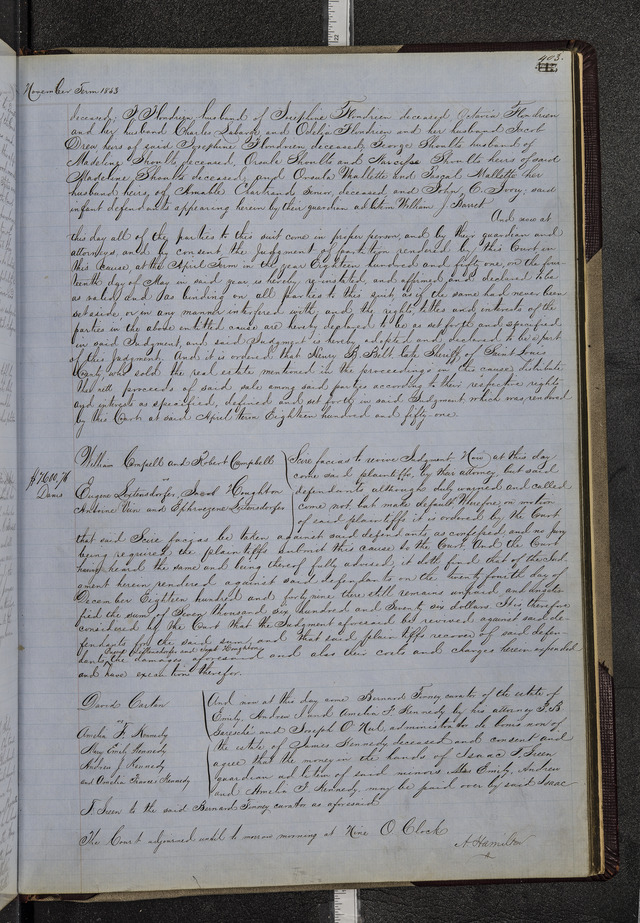 403.
November Term 1863
deceased, P. Flondrien, husband of Josephine Flondrien deceased, Octavia Flondrien
and her husband Charles and Odelia Flondrien and her husband Jacob
Drew heirs of said Josephine Flondrien deceased, George Shoults husband of
Madeline Shoults deceased, Orsule Shoults and Narcisse Shoults heirs of said
Madeline Shoults deceased, and Orsula Mallette and Pascal Mallette her
husband heirs of Amable Chartrand Senior, deceased and John C. Ivory; said
infant defendants appearing herein by their guardian ad litem William J. Barret
And now at
this day all of the parties to this suit come in proper person, and by their guardian and
attorneys, and by consent, the Judgment of partition rendered by this Court in
this cause, at the April Term in the year Eighteen hundred and fifty one, on the four-
teenth day of May in said year is hereby re-instated, and affirmed, and declared to be
as valid and as binding on all parties to this suit, as if the same had never been
set aside, or in any manner interfered with, and the rights titles and interests of the
parties in the above entitled cause are hereby declared to be as set forth and specified
in said Judgment, and said Judgment is hereby adopted, and declared to be a part
of this Judgment. And it is ordered that Henry B. Belt late Sheriff of Saint Louis
County who sold the real estate mentioned in the proceedings in this cause, distribute
the nett proceeds of said sale among said parties according to their respective rights
and interests as specified, defined and set forth in said Judgment which was rendered
by this Court at said April term Eighteen hundred and fifty-one.
William Campbell and Robert Campbell
vs
Eugene Leitensdorfer, Jacob Houghton
Antoine Van and Ephrozene Leitensdorfer
$7600,76
Dams
Scire facias to revive Judgment. Now at this day
come said plaintiffs, by their attorney but said
defendants although duly warned and called
come not, but make default. Wherefore, on motion
of said plaintiffs it is ordered by the Court
that said Scire facias be taken against said defendants as confessed and no jury
being required, the plaintiffs submit this cause to the Court. And the Court
having heard the same and being thereof fully advised, it doth find that of the Judg-
ment herein rendered against said defendants on the twenty fourth day of
December Eighteen hundred and forty nine there still remains unpaid and unsatis-
fied the sum of Seven thousand six hundred and Seventy six dollars. It is therefore
considered by the Court that the Judgment aforesaid be revived against said de-
fendants for the said sum, and that said plaintiffs recover of said defen-
Eugene Leitensdorfer and Jacob Houghton
dants the damages aforesaid and also their costs and charges herein expended
and have execution therefor.
David Carter
vs
Amelia F. Kennedy
Mary Emily Kennedy
Andrew J. Kennedy
and Amelia Frances Kennedy
And now at this day come Bernard Finney, curator of the estate of
Emily, Andrew J. and Amelia F. Kennedy by his attorney P. B.
Garesche and Joseph O'Neil, administrator de bonis non of
the estate of James Kennedy deceased and consent and
agree that the money in the hands of Isaac T. Green
guardian ad litem of said minors, Emily, Andrew
and Amelia F. Kennedy, may be paid over by said Isaac
T. Green to the said Bernard Finney, curator as aforesaid.
The Court adjourned until to morrow morning at Nine O Clock
A. Hamilton